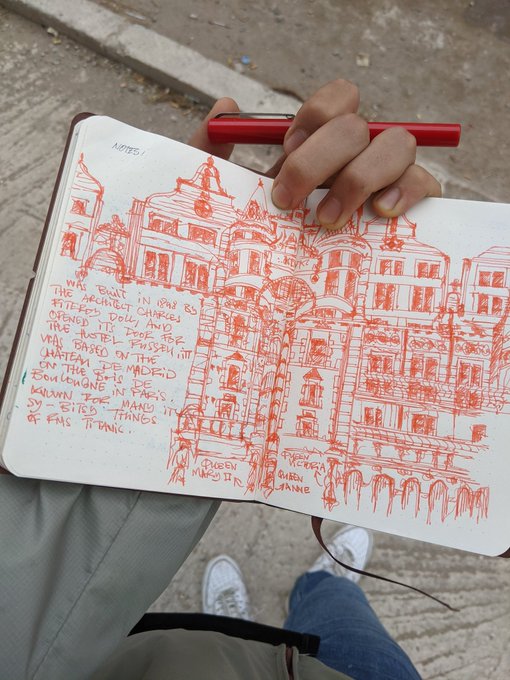 NOTES:
WAS BUILT IN 1898 BY
THE ARCHITECT CHARLES
FITZROY DOLL AND
OPENED ITS DOOR FOR
THE HOTEL RUSSELL. IT
WAS BASED ON THE
CHÂTEAU DE MADRID
ON THE BOIS DE
BOULOUGNE IN PARIS.
KNOWN FOR MANY IT
SY-BITSY THINGS
OF RMS TITANIC.
QUEEN
MARY II
QUEEN
VICTORIA
QUEEN
ANNE